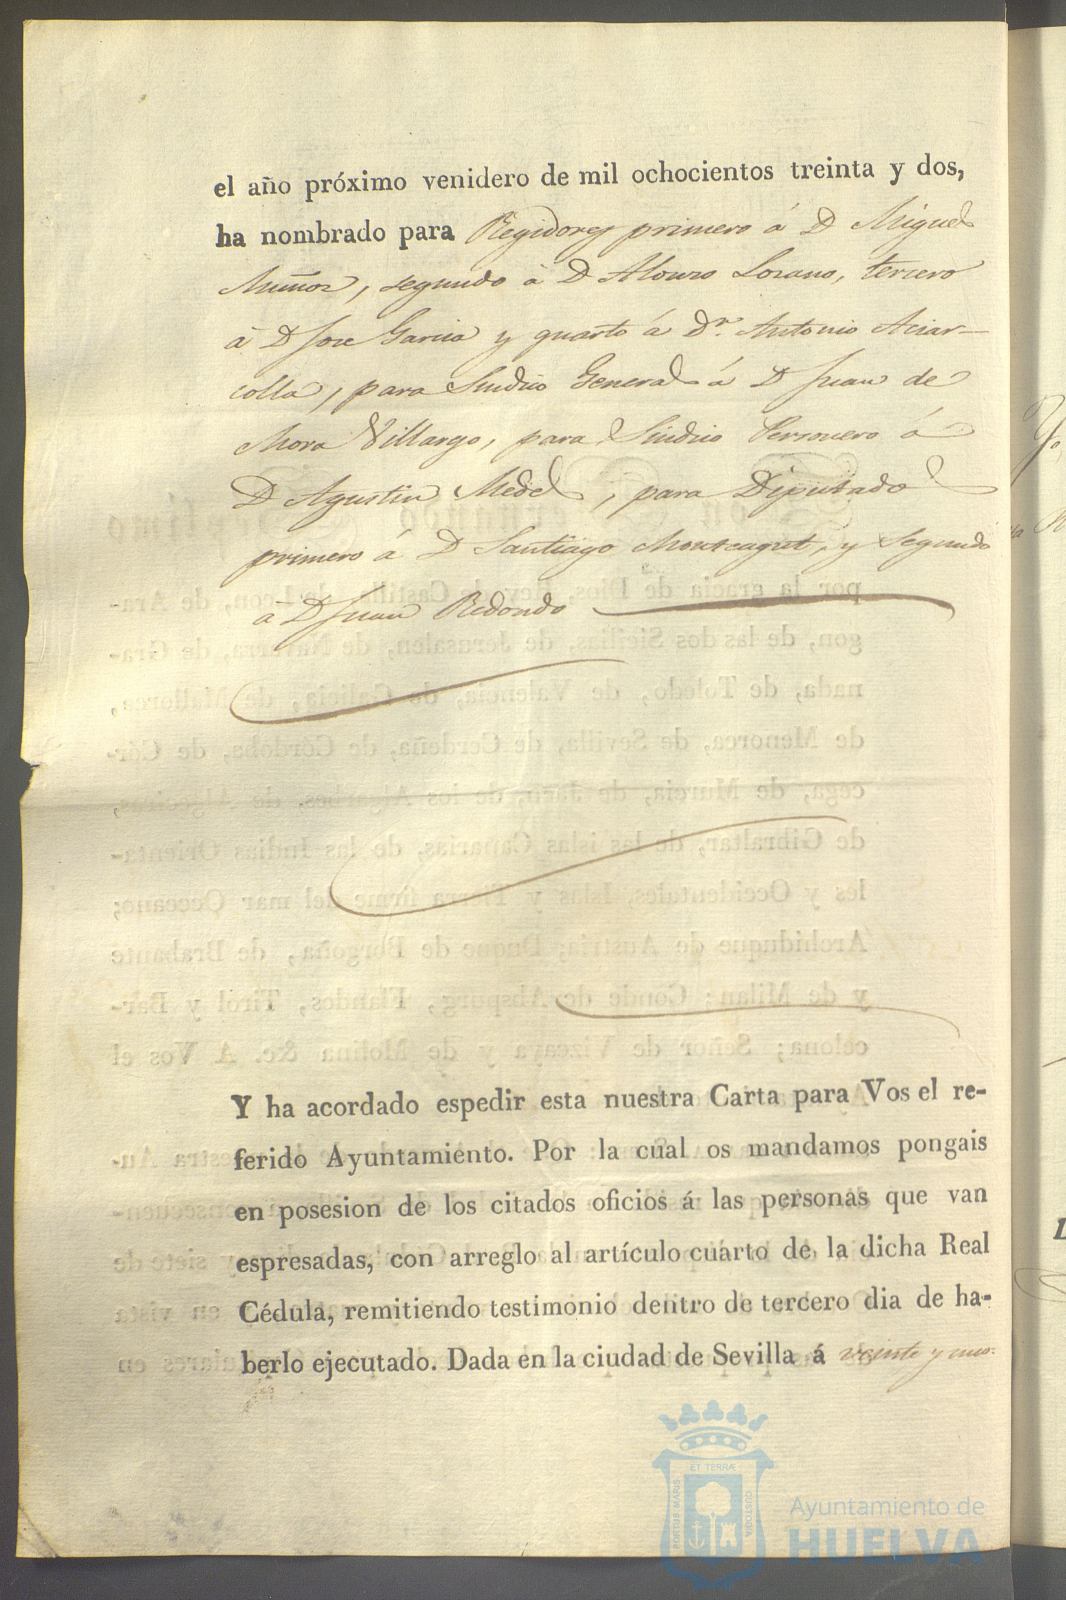 el año próximo venidero de mil ochocientos treinta y dos,
ha nombrado para Regidores primero á D Miguel
Muñoz, segundo á D Alonso Lozano, tercero
á D Jose Garcia y quarto á Dn. Antonio Aciar-
colla, para Sindico General á D Juan de
Mora Villargo, para Sindico Personero á
D Agustin Medel, para Diputado
primero á D Santiago Montcagut, y segundo
á D Juan Redondo
Y ha acordado espedir esta nuestra Carta para Vos el re-
ferido Ayuntamiento. Por la cual os mandamos pongais
en posesion de los citados oficios á las personas que van
espresadas, con arreglo al artículo cuarto de la dicha Real
Cédula, remitiendo testimonio dentro de tercero dia de ha-
berlo ejecutado. Dada en la ciudad de Sevilla á veinte y uno
PORTUS MARIS ET TERRÆ CUSTODIA
Ayuntamiento de
HUELVA